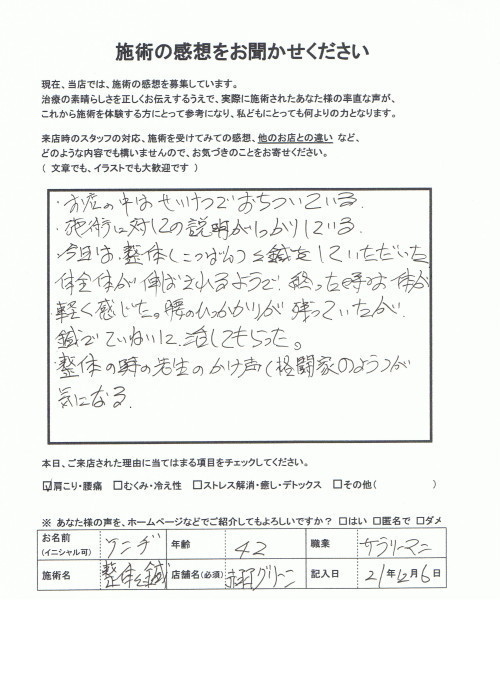 施術の感想をお聞かせください
現在、当店では、施術の感想を募集しています。
治療の素晴らしさを正しくお伝えするうえで、実際に施術されたあなた様の率直な声が、
これから施術を体験する方にとって参考になり、私どもにとっても何よりの力となります。
来店時のスタッフの対応、施術を受けてみての感想、他のお店との違い など、
どのような内容でも構いませんので、お気づきのことをお寄せください。
( 文章でも、イラストでも大歓迎です )
・お店の中はせいけつでおちついている。
・施術に対しての説明がしっかりしている。
・今日は、整体(こつばん)と鍼をしていただいた
体全体が伸ばされるようで、終った時は体が
軽く感じた。腰のひっかかりが残っていたが、
鍼でていねいに治してもらった。
・整体の時の先生のかけ声(格闘家のようつが
気になる。
本日、ご来店された理由に当てはまる項目をチェックしてください。
☑肩こり・腰痛 □むくみ・冷え性 □ストレス解消・癒し・デトックス □その他( )
※ あなた様の声を、ホームページなどでご紹介してもよろしいですか？ □はい □匿名で □ダメ
お名前 (イニシャル可) ケンヂ 年齢 42 職業 サラリーマン
施術名 整体と鍼 店舗名(必須) グリーン 記入日 21年12月6日